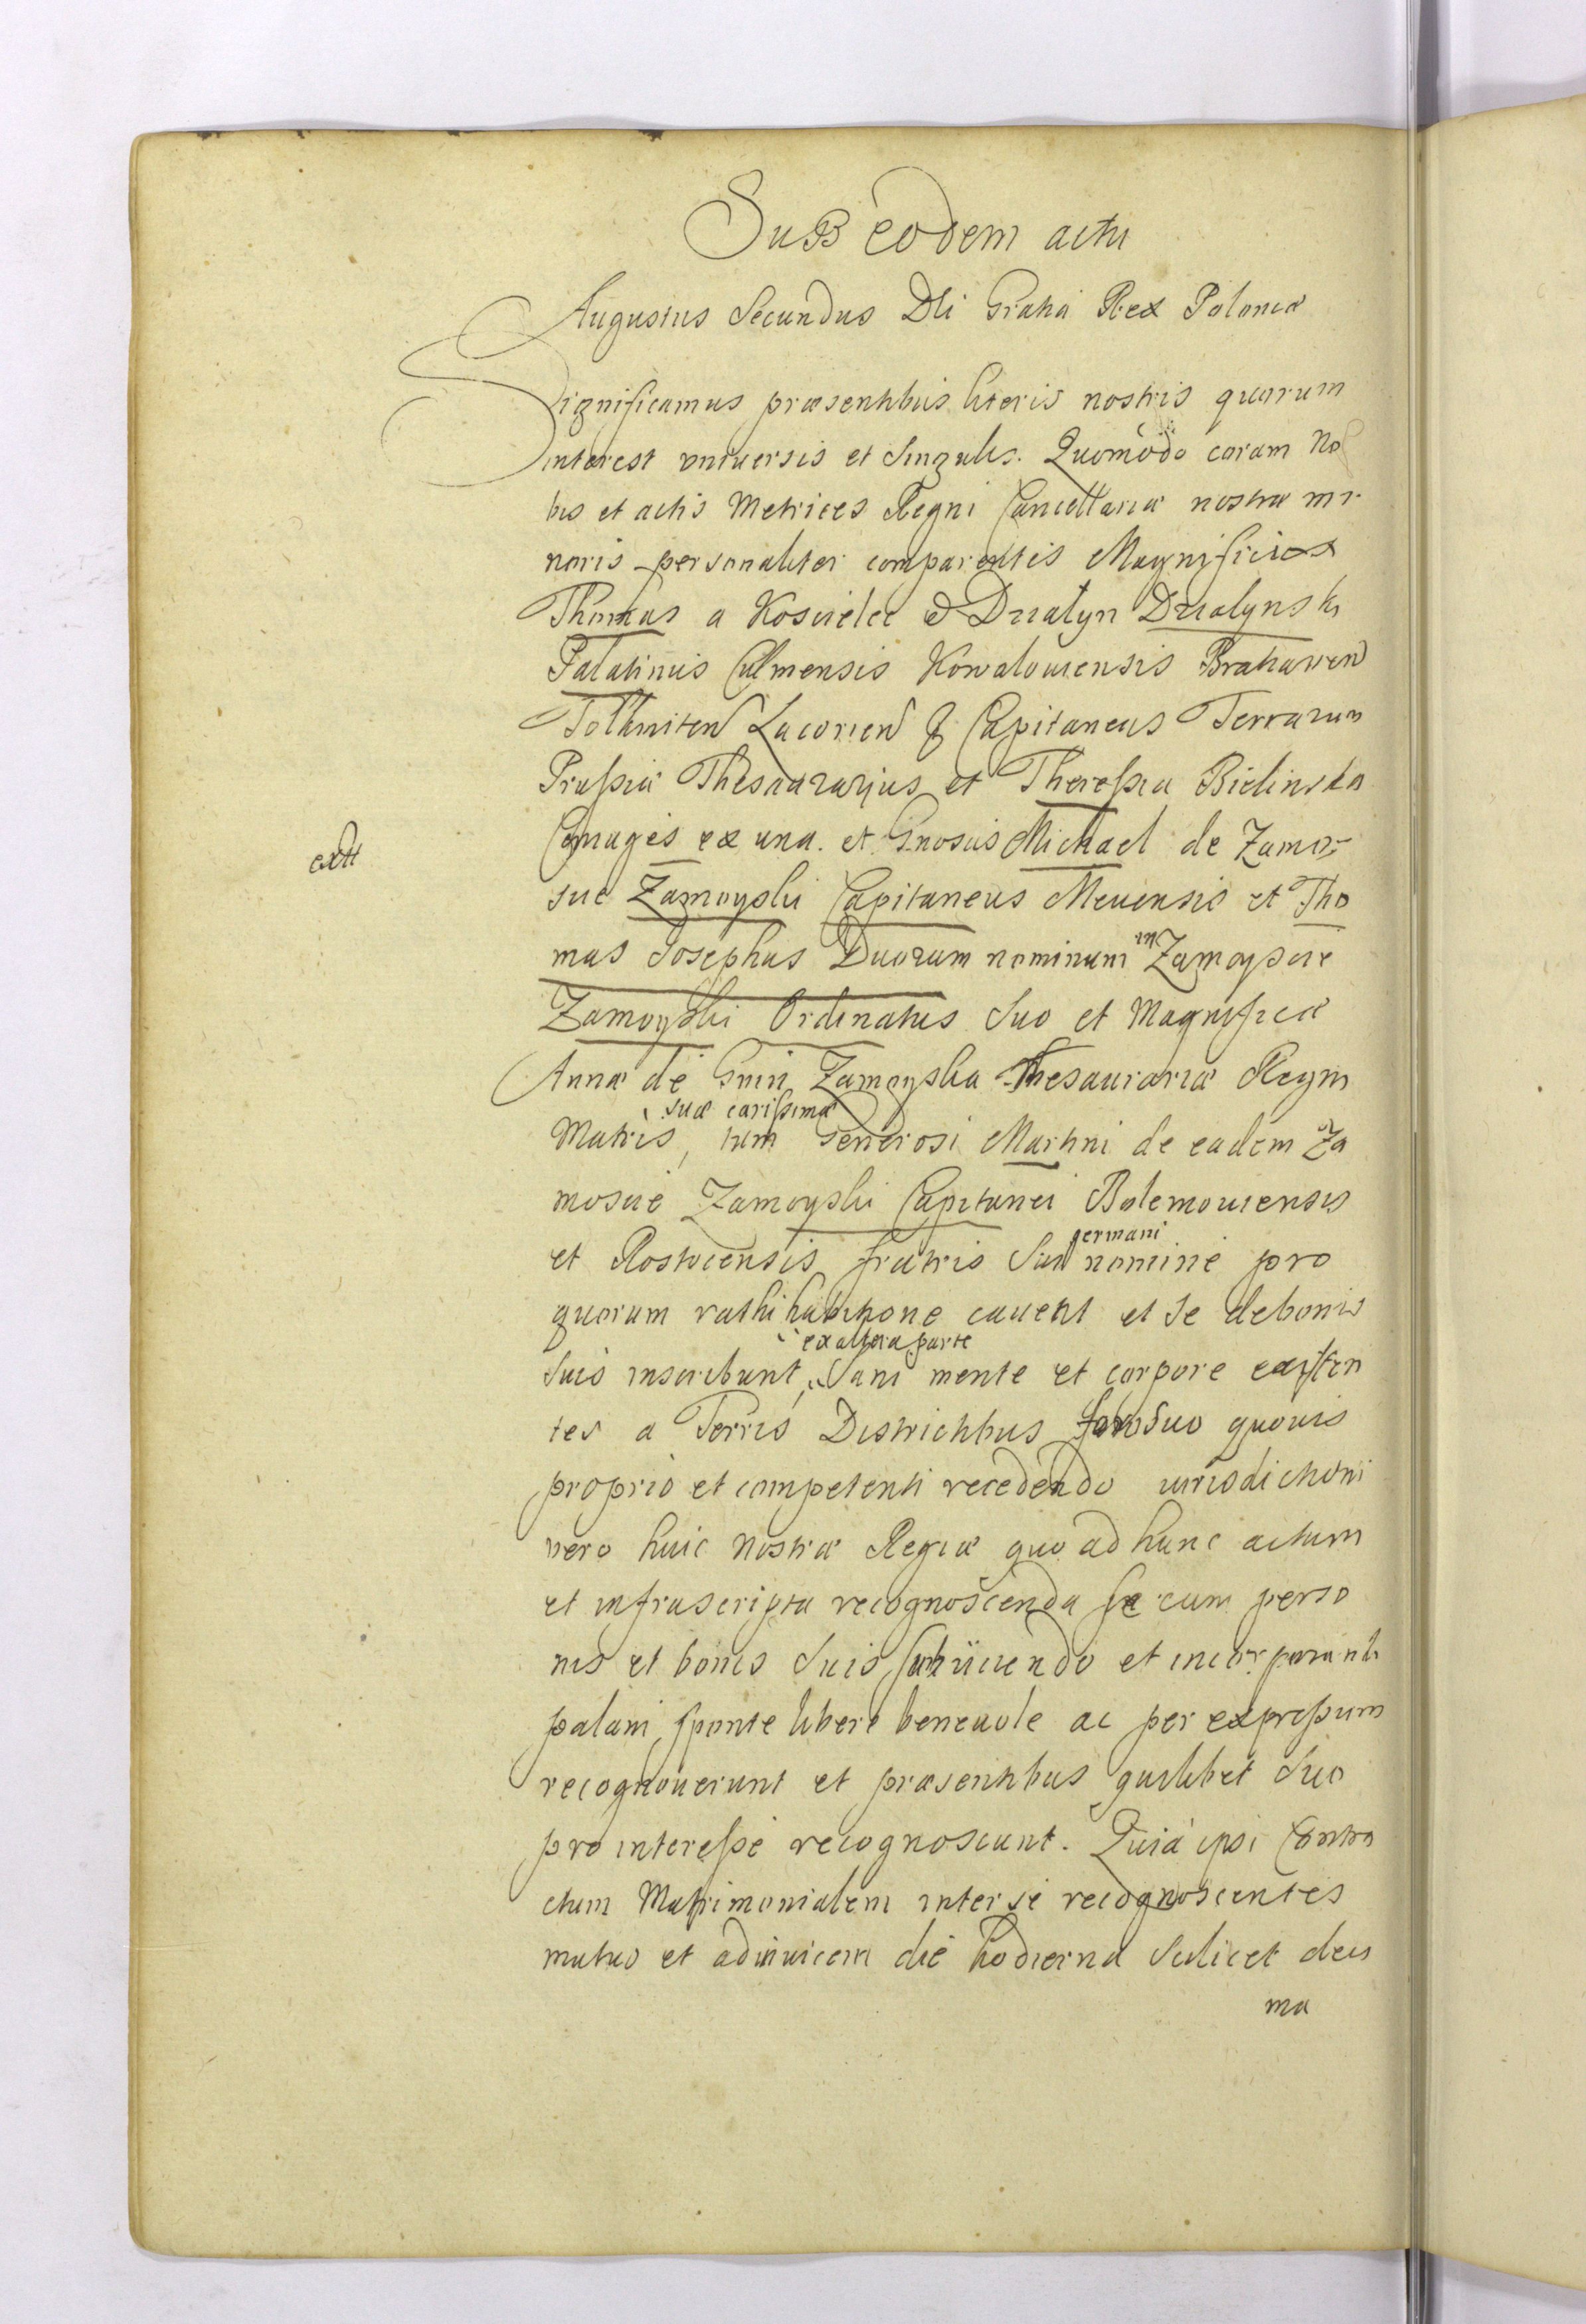 Sub eodem actu
Augustus Secundus Dei Gratia Rex Poloniæ
Significamus præsentibus literis nostris quorum
interest vniuersis et singulis. Quomodo coram No
bis et actis Metrices Regni Cancellariæ nostræ mi
noris personaliter comparentes Magnificus
Thomas a Koscielec & Dzialyn Dzialynski
Palatinus Culmensis Kowalouiensis Bratiawen
Tolkmiten Lacorien & Capitaneus Terrarum
Prussiæ Thesaurarius et Theressia Bielinska
Coniuges ex una. et Gnosus Michael de Zamo
extt
scie Zamoyski Capitaneus Meuensis et Tho
mas Josephus Duorum nominum in Zamoyscie
Zamoyski Ordinatus suo et Magnificæ
Annæ de Gnin Zamoyska Thesaurariæ Regni
suæ carissimæ
Matris, tum Generosi Martini de eadem Za
moscie Zamoyski Capitanei Bolemouiensis
germani
et Rostocensis fratris sui nomine pro
quorum rathihabitione cauent et se de bonis
ex altera parte
suis inscribunt, Sani mente et corpore existen
tes a Terris Districtibus foro suo quouis
proprio et competenti recedendo iurisdictioni
vero huic nostræ Regiæ quo ad hunc actum
et infrascripta recognoscenda se cum perso
nis et bonis suis subiiciendo et incorporando
palam sponte libere beneuole ac per expressum
recognouerunt et præsentibus quilibet suo
pro interesse recognoscunt. Quia ipsi Contra
ctum Matrimonialem inter se recognoscentes
mutuo et adinuicem die hodierna scilicet deci
ma